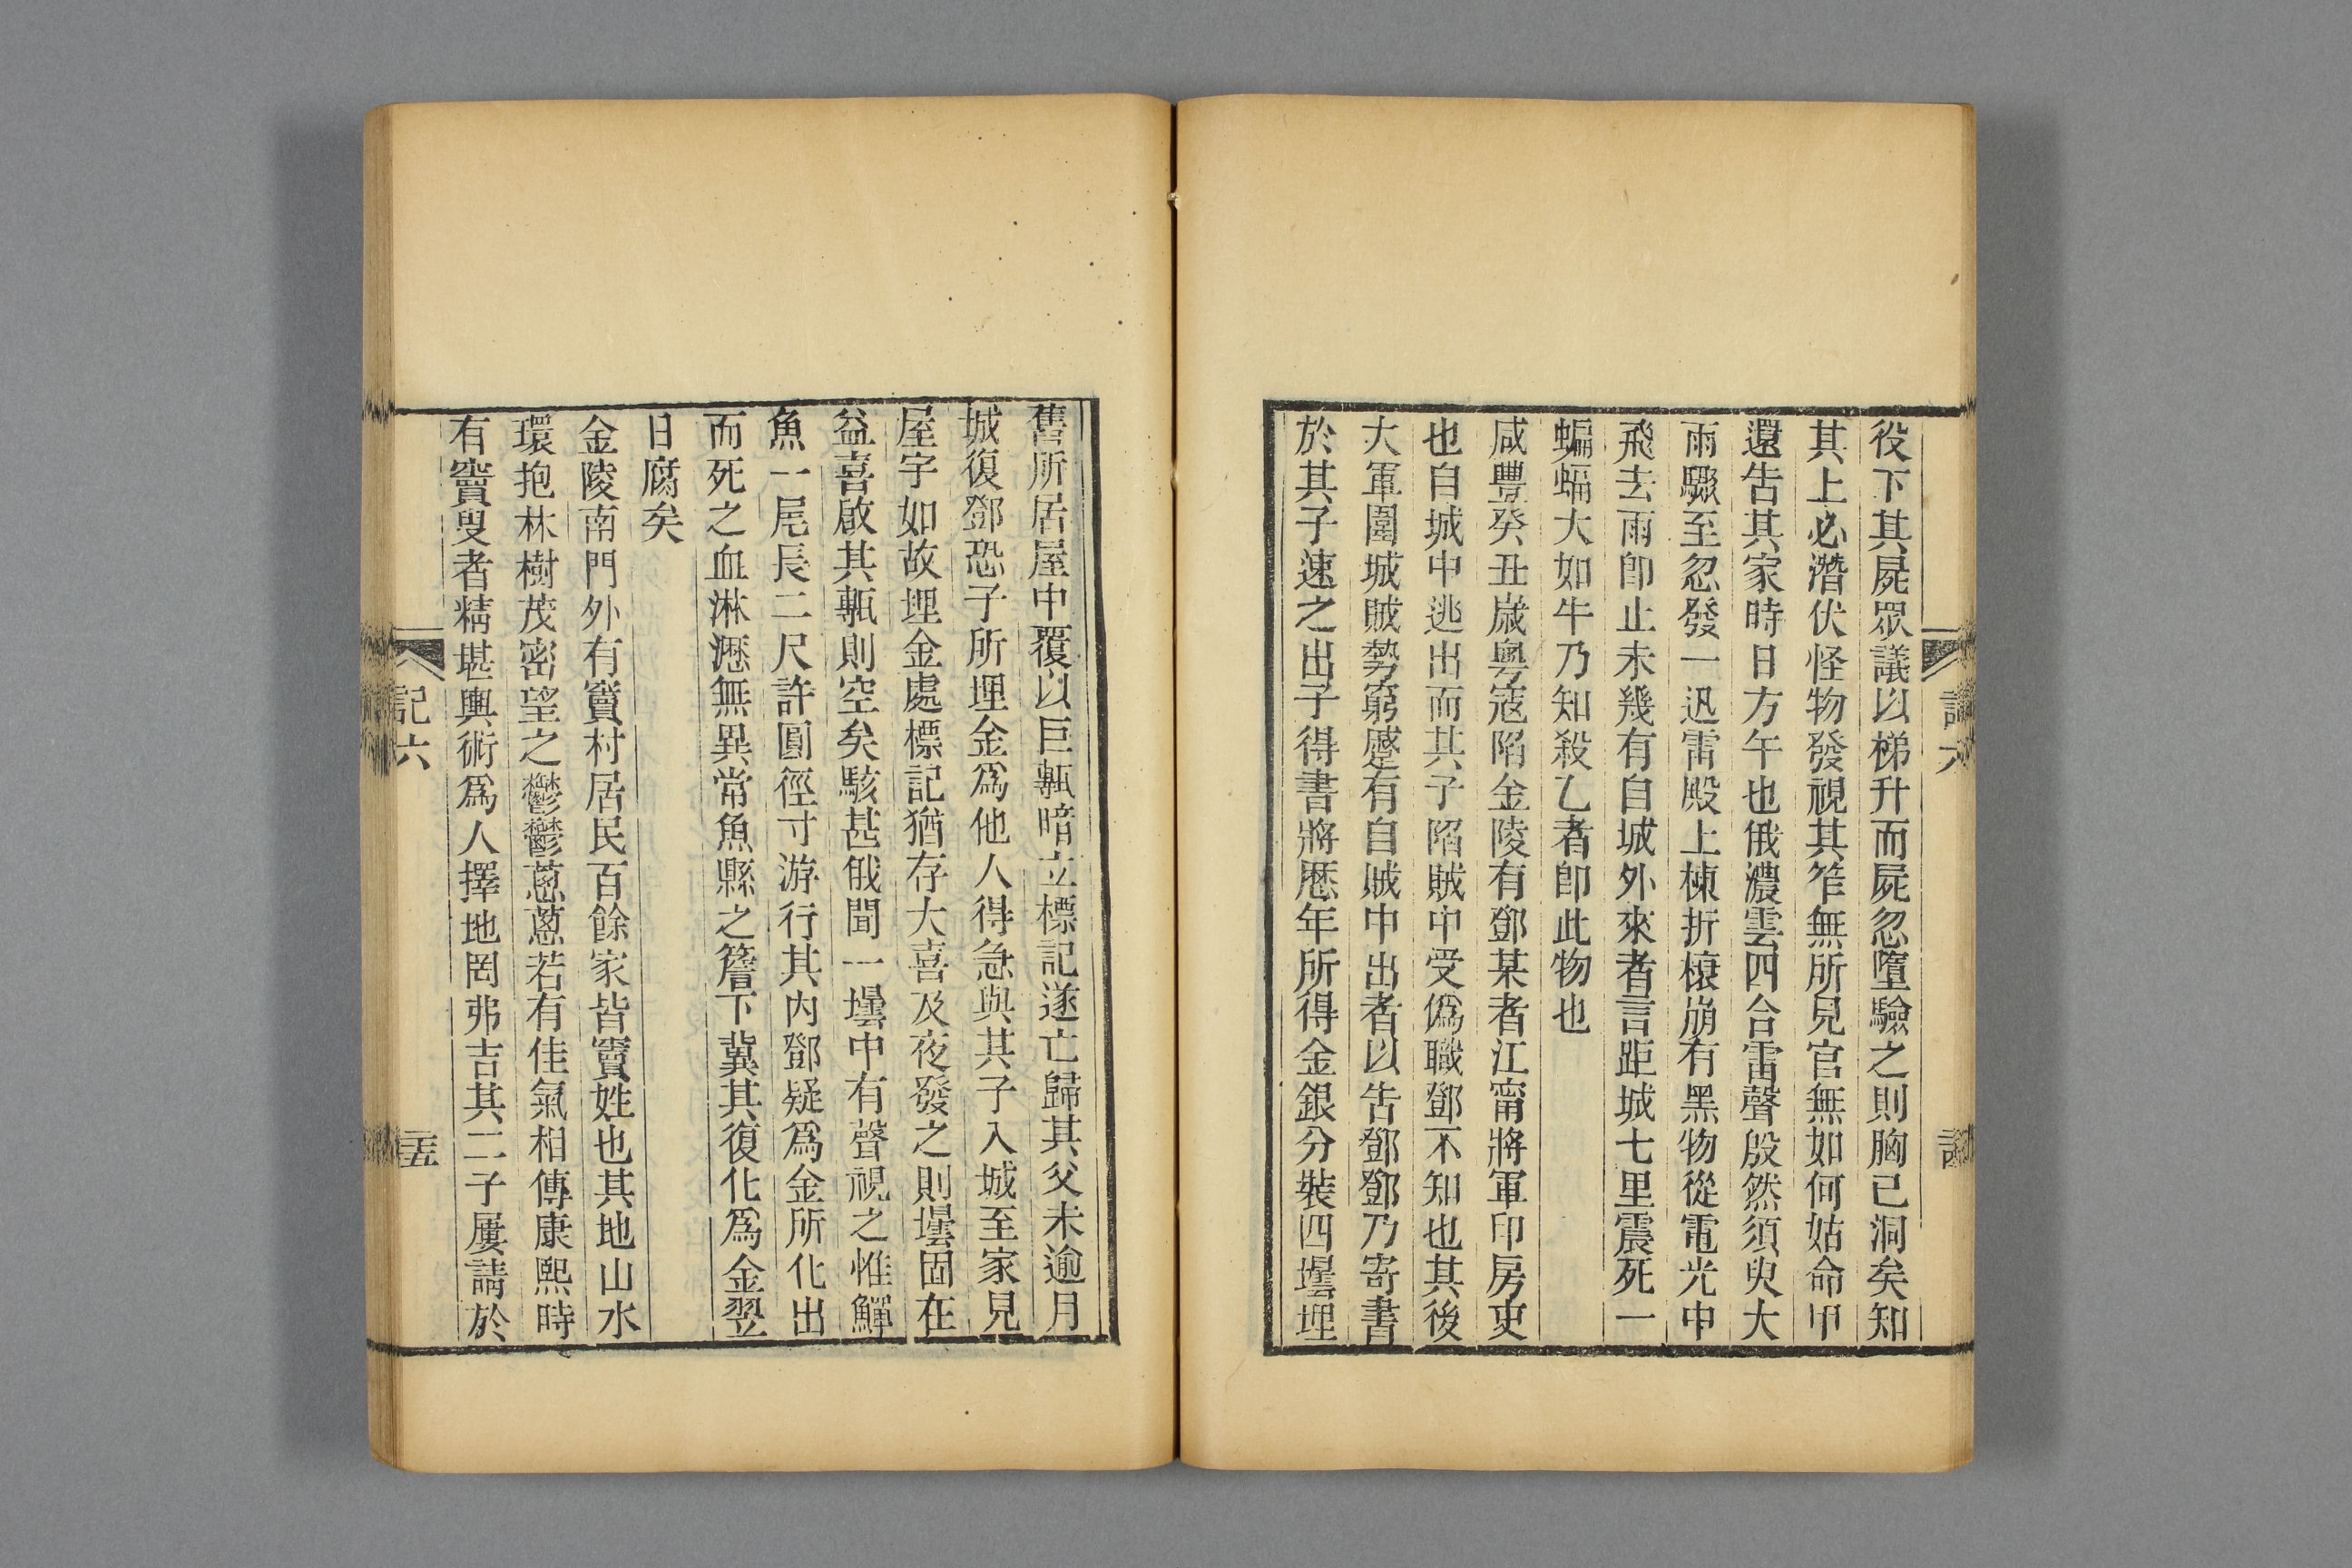 役下其屍眾議以梯升而屍忽墮驗之則胸已洞矣知
其上必潛伏怪物發視其笮無所見官無如何姑命甲
還告其家時日方午也俄濃雲四合雷聲殷然須臾大
雨驟至忽發一迅雷殿上棟折榱崩有黑物從電光中
飛去雨卽止未幾有自城外來者言距城七里震死一
蝙蝠大如牛乃知殺乙者卽此物也
咸豐癸丑歲粵寇陷金陵有鄧某者江甯將軍印房吏
也自城中逃出而其子陷賊中受僞職鄧不知也其後
大軍圍城賊勢窮蹙有自賊中出者以告鄧鄧乃寄書
於其子速之出子得書將厯年所得金銀分裝四壜埋
舊所居屋中覆以巨甎暗立標記遂亡歸其父未逾月
城復鄧恐子所埋金爲他人得急與其子入城至家見
屋宇如故埋金處標記猶存大喜及夜發之則壜固在
益喜啟其甎則空矣駭甚俄聞一壜中有聲視之惟鱓
魚一尾長二尺許圓徑寸游行其內鄧疑爲金所化出
而死之血淋漉無異常魚縣之簷下冀其復化爲金翌
日腐矣
金陵南門外有竇村居民百餘家皆竇姓也其地山水
環抱林樹茂密望之鬱鬱蔥蔥若有佳氣相傳康熙時
有竇叟者精堪輿術爲人擇地罔弗吉其二子屢請於
記六
二十五